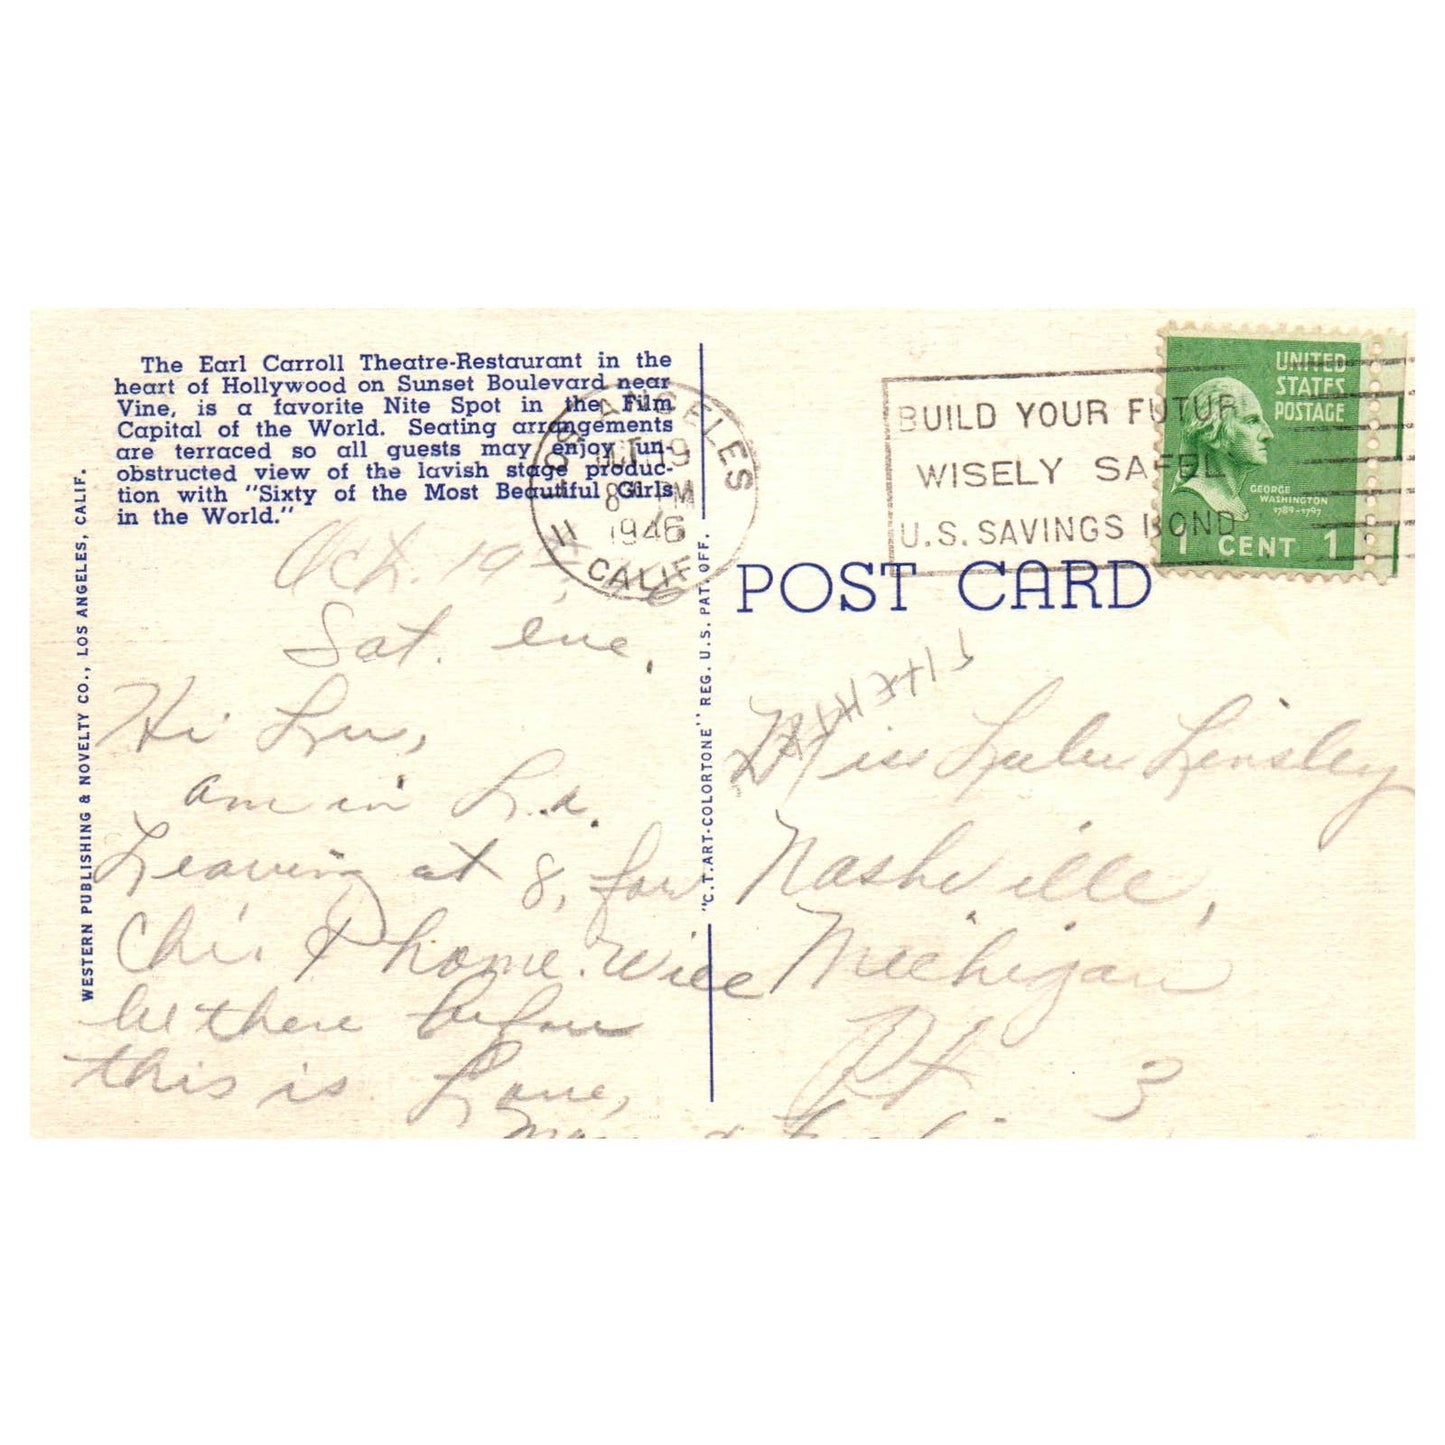 The Earl Carroll Theatre-Restaurant in the
heart of Hollywood on Sunset Boulevard near
Vine, is a favorite Nite Spot in the Film
Capital of the World. Seating arrangements
are terraced so all guests may enjoy un-
obstructed view of the lavish stage produc-
tion with "Sixty of the Most Beautiful Girls
in the World."
WESTERN PUBLISHING & NOVELTY CO., LOS ANGELES, CALIF.
Oct. 19
Sat. eve.
Hi Lu,
am in L.a.
Leaving at 8, for
Chi. & home. Will
be there before
this is Love,
"C.T. ART-COLORTONE" REG. U.S. PAT. OFF.
LOS ANGELES
OCT 19
8 PM
1946
11 CALIF
BUILD YOUR FUTUR
WISELY SAFEL
U.S. SAVINGS BOND
UNITED
STATES
POSTAGE
GEORGE
WASHINGTON
1789-1797
1 CENT 1
POST CARD
Miss Lulu Linsley
Nashville,
Michigan
Rt. 3